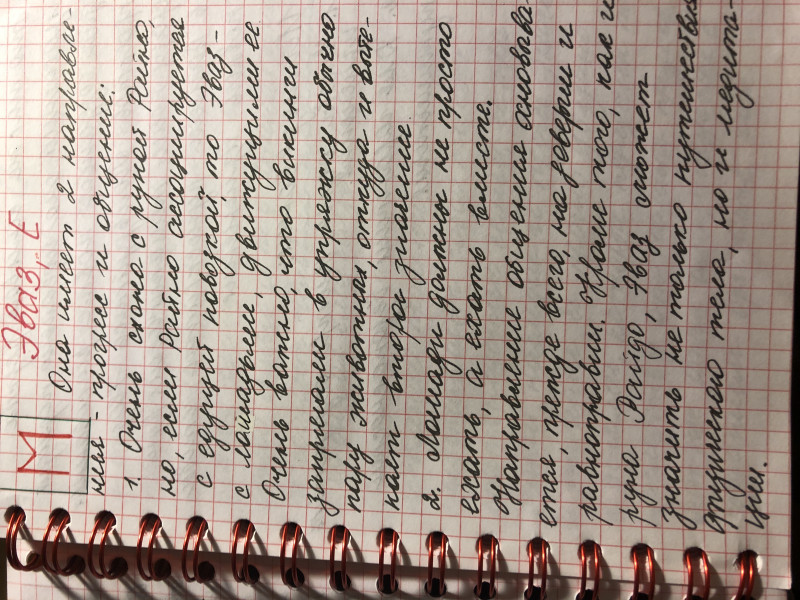 М Эваз, Е
Она имеет 2 направле-
ния - процесс и общение:
1. Очень схожа с руной Райно,
но, если Райно ассоциируется
с едущей повозкой, то Эваз -
с лошадьми, движущими её
Очень важно, что викинги
запрягали в упряжку обычно
пару животных, откуда и выте-
кает второе значение
2. Лошади должны не просто
ехать, а ехать вместе.
Направление общения основыва-
ется, прежде всего, на доверии и
равноправии. Кроме того, как и
руна Райдо, Эваз может
значить не только путешествия
физического тела, но и медита-
ции.